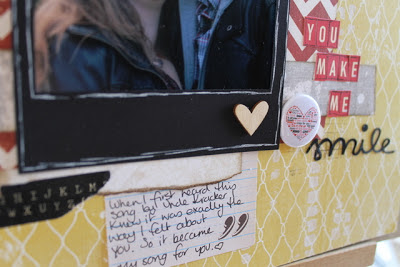 YOU
MAKE
ME
smile
H I J K L M
W X Y Z
When I first heard this
song by Uncle Kracker, I
knew it was exactly the
way I felt about
you. So it became
my song for you.